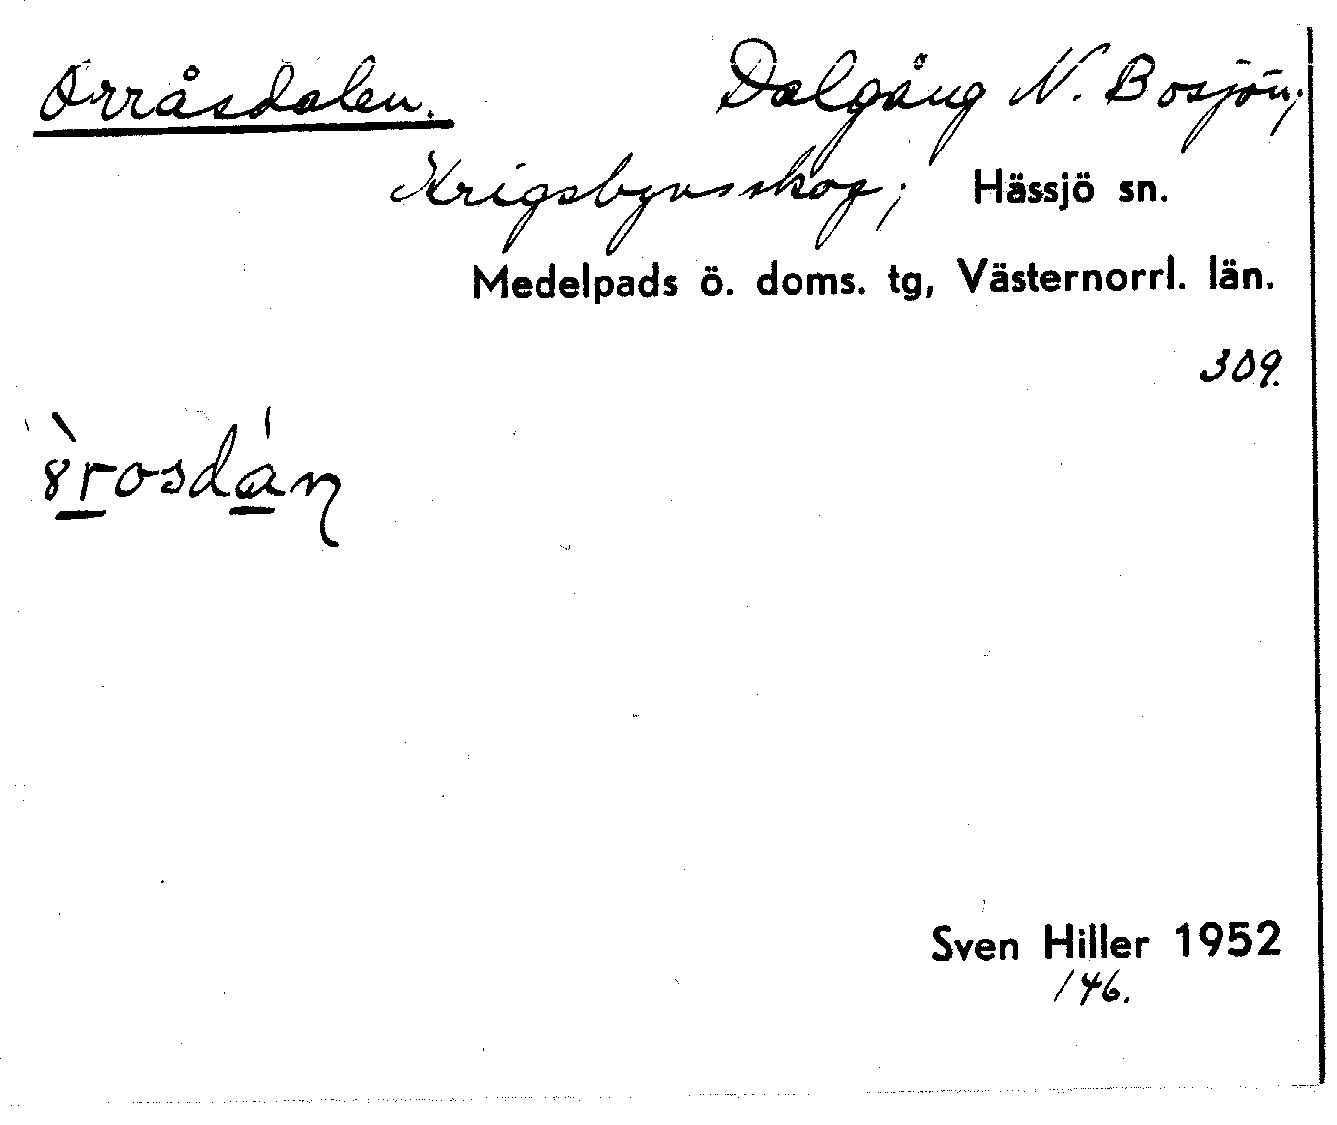 Orråsdalen.
Dalgång N. Bosjön;
Krigsbynsskog; Hässjö sn.
Medelpads ö. doms. tg, Västernorrl. län.
309.
8̀rosdán
Sven Hiller 1952
146.